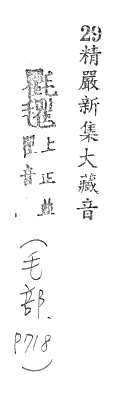 29精嚴新集大藏音
上正並
音
(毛部.P718)